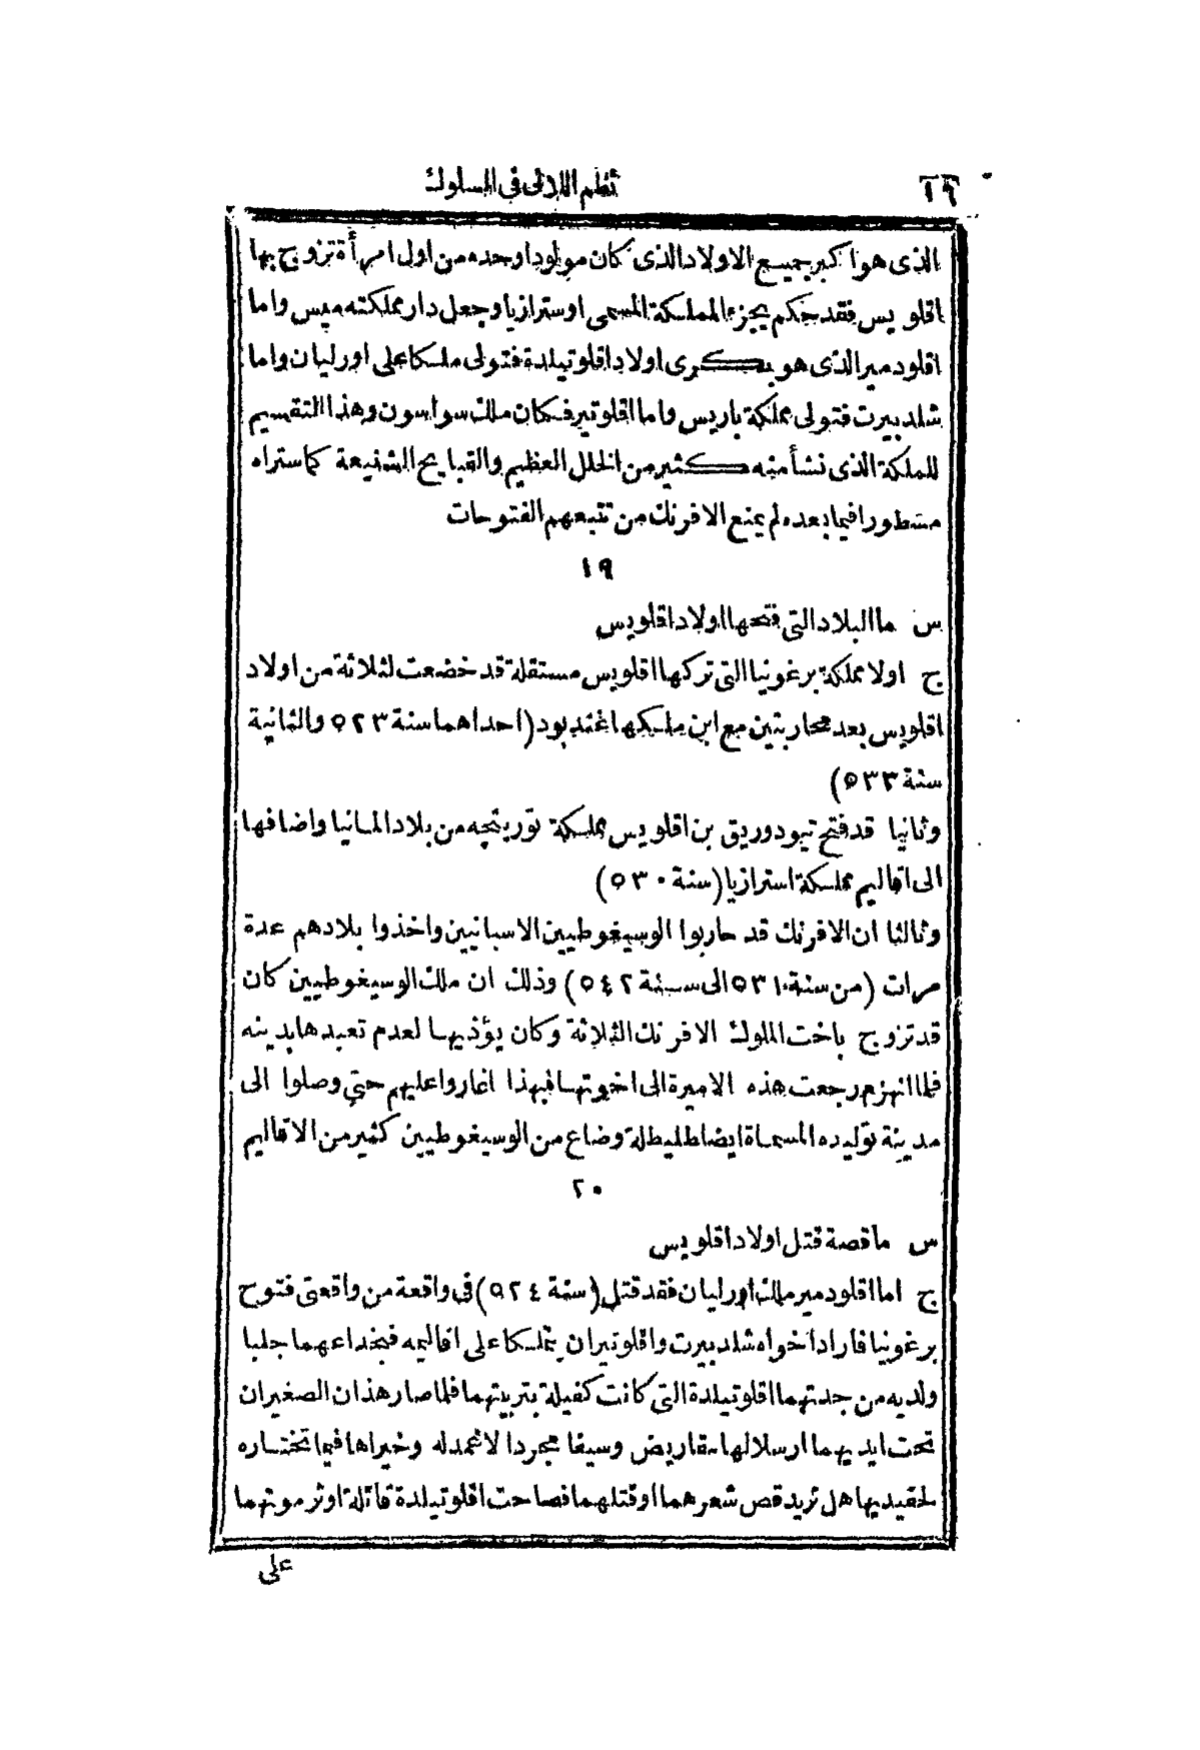 ١٦
نظم اللالى فى السلوك
الذى هو اكبر جميع الاولاد الذى كان مولودا وحده من اول امرأة تزوج بها
اقلويس فقد حكم بجزء المملكة المسمى اوسترازيا وجعل دار مملكته ميس واما
اقلودمير الذى هو بكرى اولاد اقلوتيلدة فتولى ملكا على اورليان واما
شلدبيرت فتولى مملكة باريس واما اقلوتير فكان ملك سواسون وهذا التقسيم
للمملكة الذى نشأ منه كثير من الخلل العظيم والقبايح الشنيعة كما ستراه
مسطورا فيما بعده لم يمنع الافرنك من تتبعهم الفتوحات
١٩
س ما البلاد التى فتحها اولاد اقلويس
ج اولا مملكة برغونيا التى تركها اقلويس مستقلة قد خضعت لثلاثة من اولاد
اقلويس بعد محاربتين مع ابن ملكها غندبود (احداهما سنة ٥٢٣ والثانية
سنة ٥٣٣)
وثانيا قد فتح تيودوريق بن اقلويس مملكة تورينجه من بلاد المانيا واضافها
الى اقاليم مملكة استرازيا (سنة ٥٣٠)
وثالثا ان الافرنك قد حاربوا الوسيغوطيين الاسبانيين واخذوا بلادهم عدة
مرات (من سنة ٥٣١ الى سنة ٥٤٢) وذلك ان ملك الوسيغوطيين كان
قد تزوج باخت الملوك الافرنك الثلاثة وكان يؤذيها لعدم تعبدها بدينه
فلما انهزم رجعت هذه الاميرة الى اخوتها فبهذا اغاروا عليهم حتى وصلوا الى
مدينة توليده المسماة ايضا طليطلة وضاع من الوسيغوطيين كثير من الاقاليم
٢٠
س ما قصة قتل اولاد اقلويس
ج اما اقلودمير ملك اورليان فقد قتل (سنة ٥٢٤) فى واقعة من واقعتى فتوح
برغونيا فاراد اخواه شلدبيرت واقلوتير ان يتملكا على اقاليمه فبخداعهما جلبا
ولديه من جدتهما اقلوتيلدة التى كانت كفيلة بتربيتهما فلما صار هذان الصغيران
تحت ايديهما ارسلا لها مقاريض وسيفا مجردا لا غمد له وخيراها فيما تختاره
لحفيديها هل تريد قص شعرهما او قتلهما فصاحت اقلوتيلدة قائلة اوثر موتهما
على